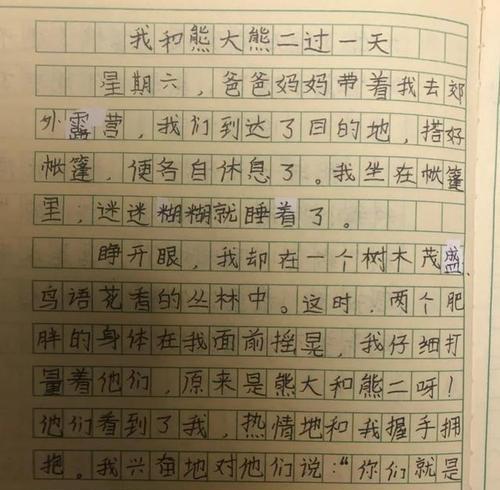 我和熊大熊二过一天
星期六，爸爸妈妈带着我去郊
外露营，我们到达了目的地，搭好
帐篷，便各自休息了。我坐在帐篷
里，迷迷糊糊就睡着了。
睁开眼，我却在一个树木茂盛、
鸟语花香的丛林中。这时，两个肥
胖的身体在我面前摇晃，我仔细打
量着他们，原来是熊大和熊二呀！
他们看到了我，热情地和我握手拥
抱。我兴奋地对他们说：“你们就是